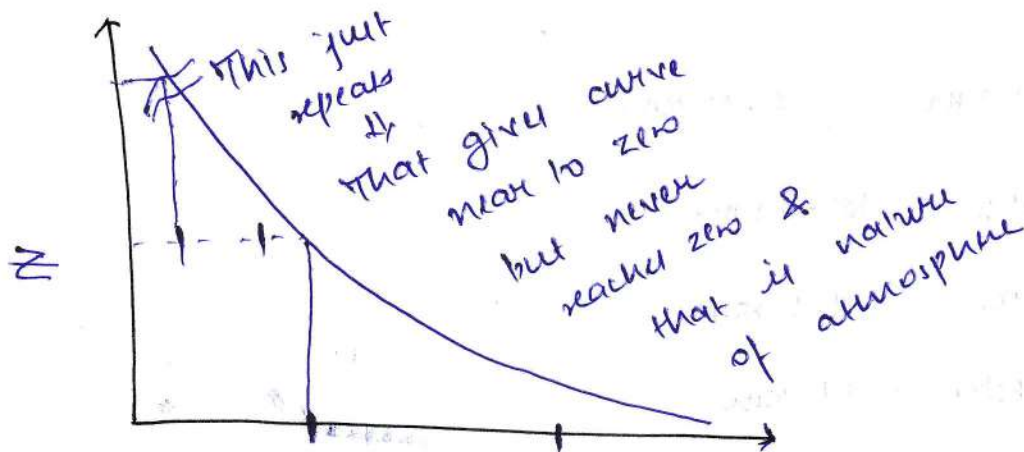 This just
repeats
⇓
That gives curve
near to zero
but never
reaches zero &
that is nature
of atmosphere
Z